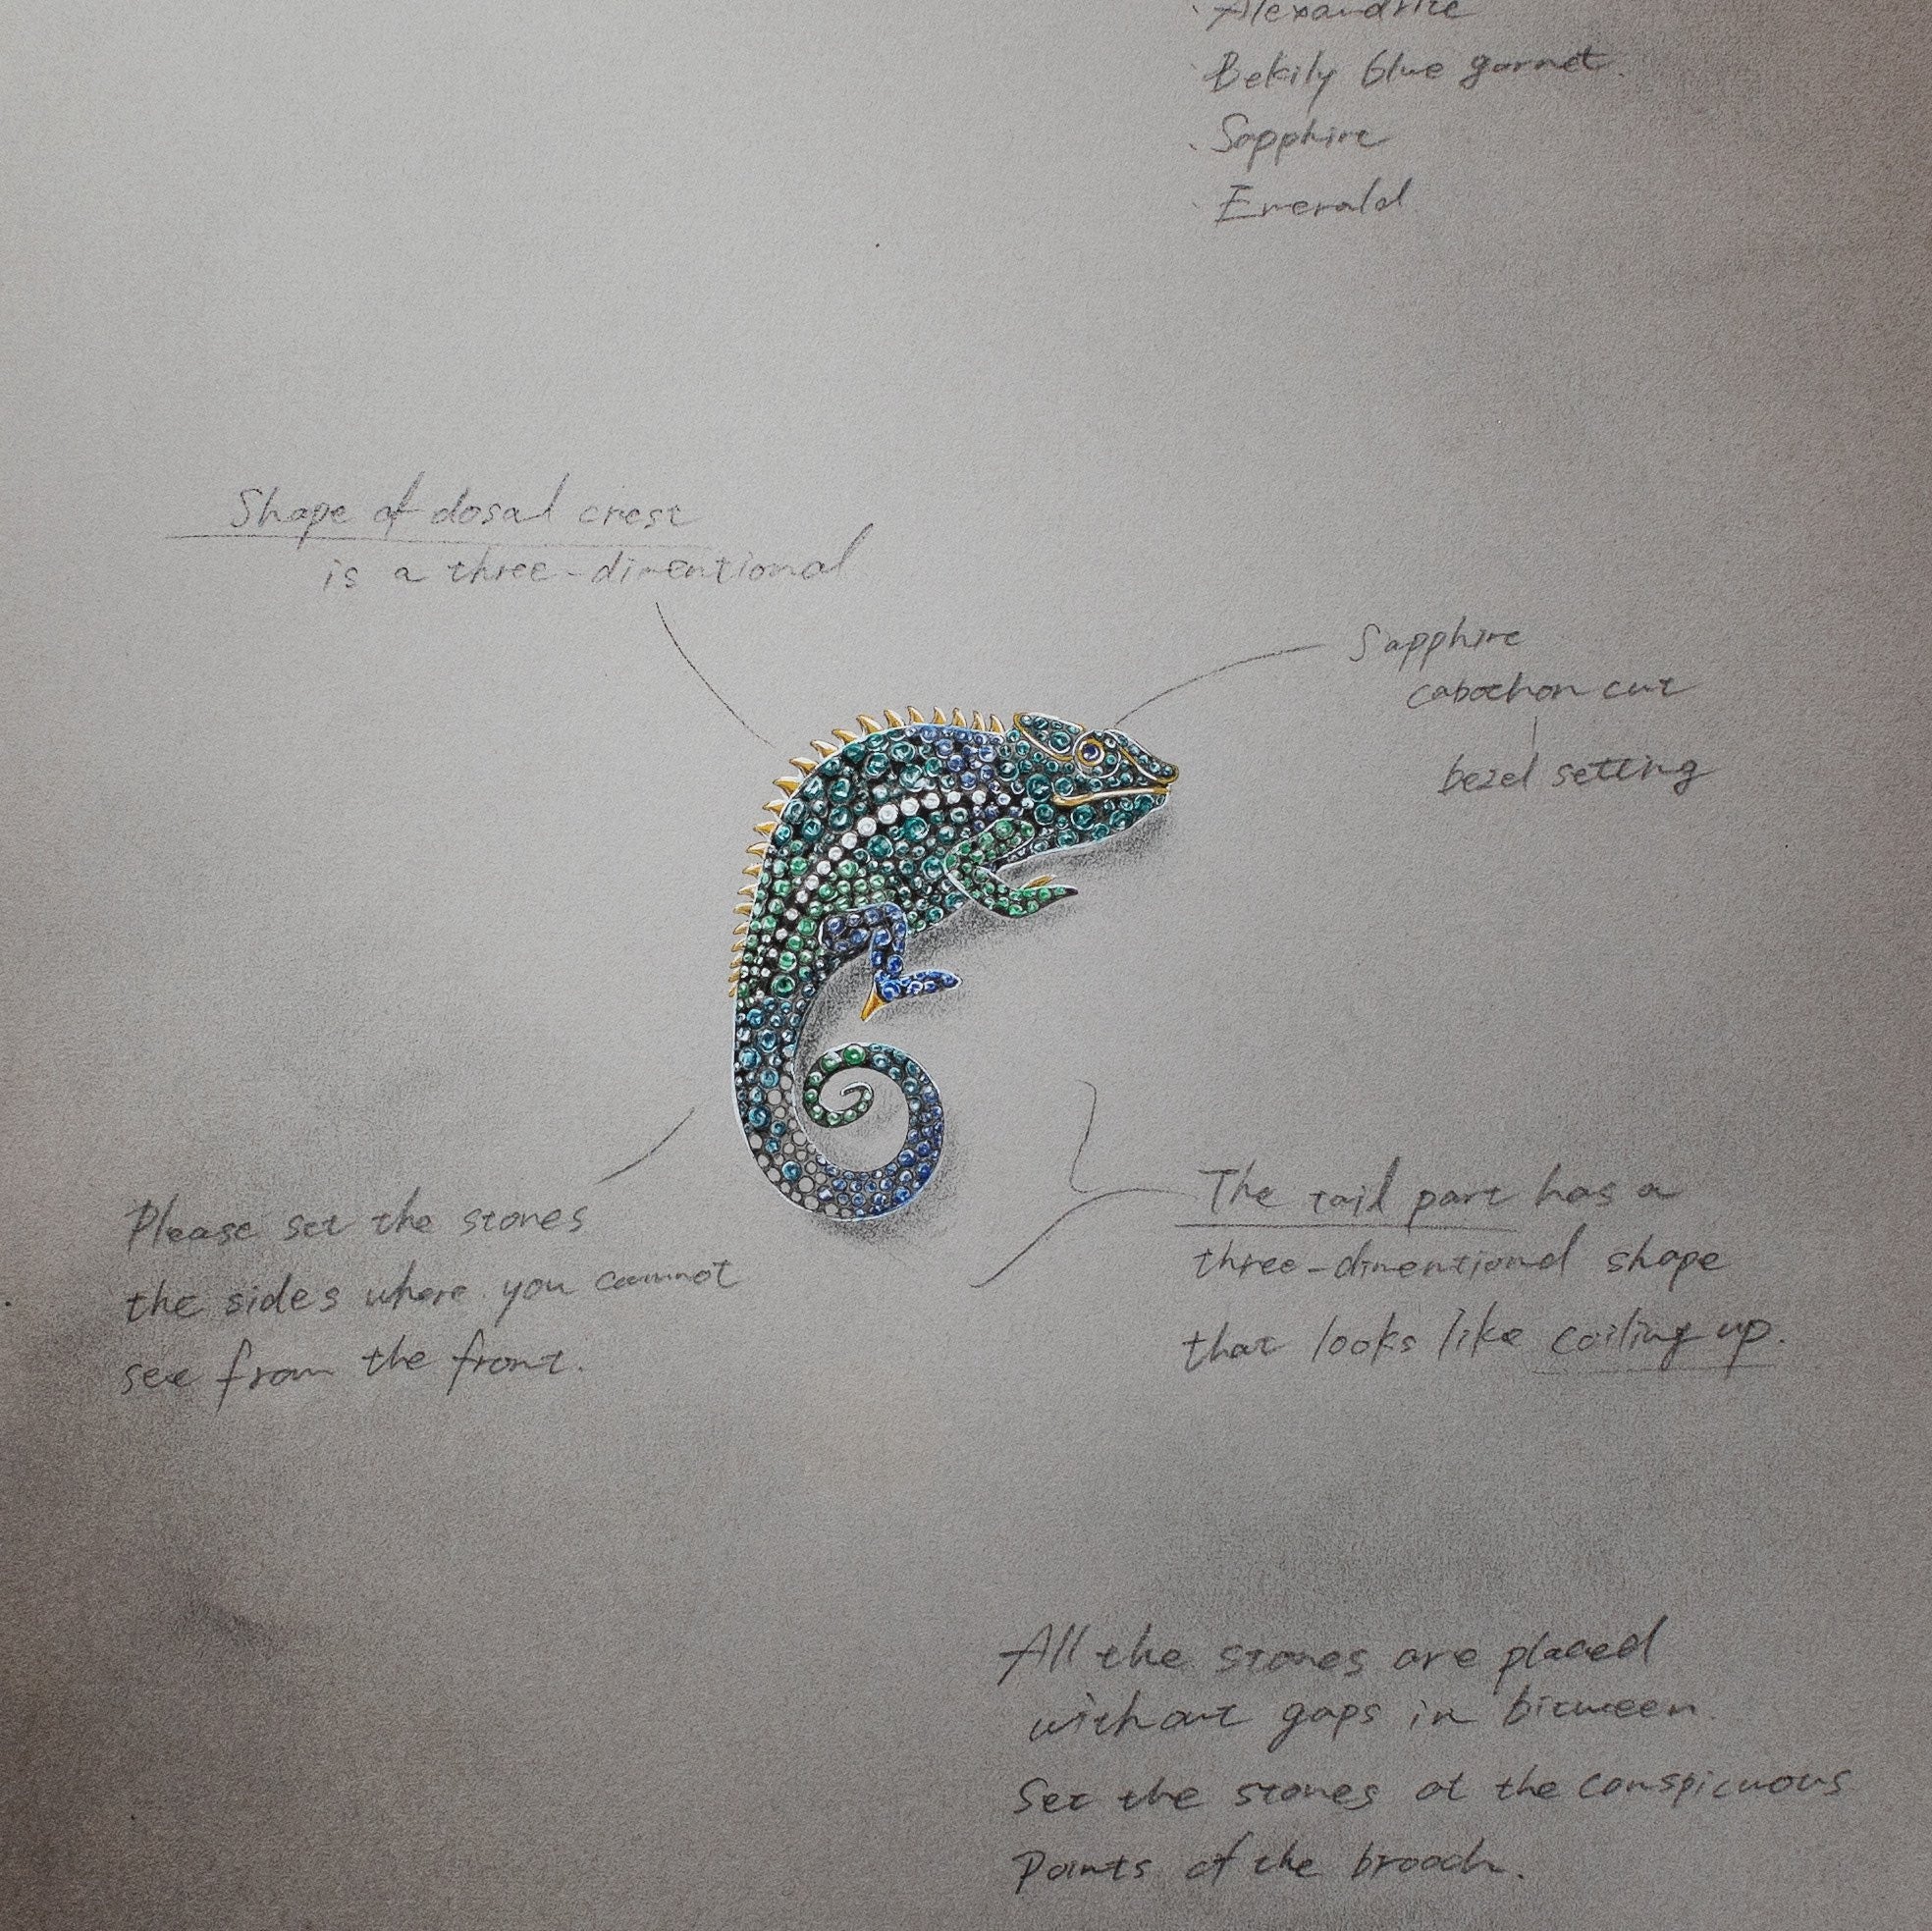 · Alexandrite
· Bekily blue garnet.
· Sapphire
· Emerald
Shape of dosal crest
is a three-dimentional
Sapphire
cabochon cut
bezel setting
Please set the stones
the sides where you cannot
see from the front.
The tail part has a
three-dimentional shape
that looks like coiling up.
All the stones are placed
without gaps in bitween.
Set the stones at the conspicuous
Points of the brooch.